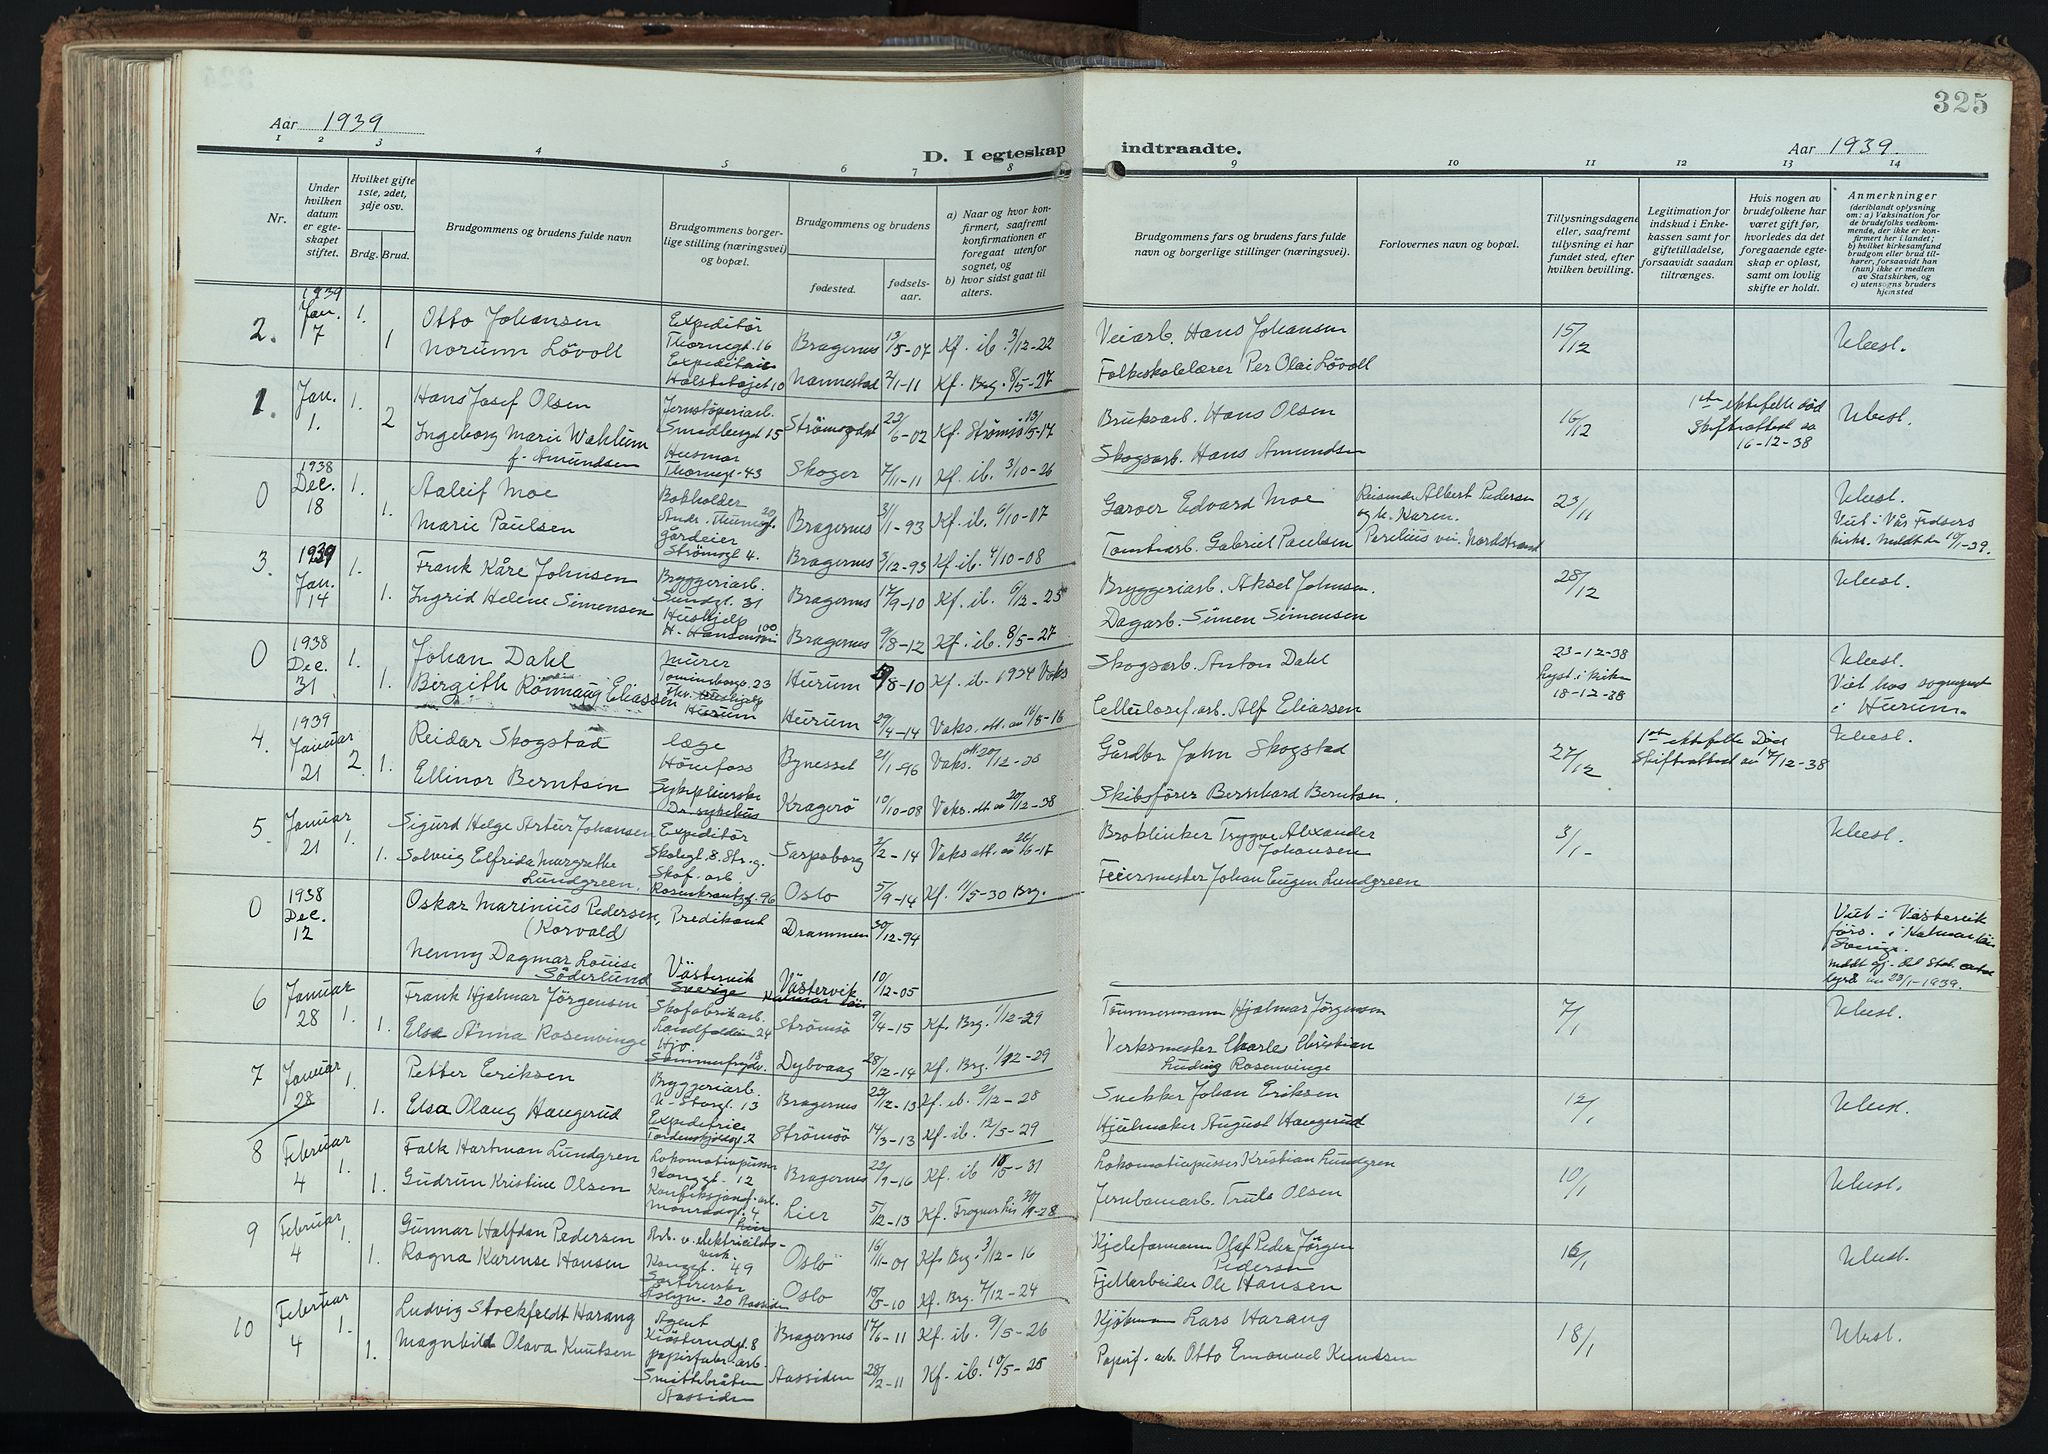 325
Aar 1939
D. I egteskap
indtraadte.
Aar 1939.
1 2 3 4 5 6 7 8
9 10 11 12 13 14
Nr.
Under hvilken datum er egteskapet stiftet.
Hvilket gifte 1ste, 2det, 3dje osv.
Brdg. Brud.
Brudgommens og brudens fulde navn
Brudgommens borgerlige stilling (næringsvei) og bopæl.
Brudgommens og brudens
fødested.
fødselsaar.
a) Naar og hvor konfirmert, saafremt konfirmationen er foregaat utenfor sognet, og
b) hvor sidst gaat til alters.
Brudgommens fars og brudens fars fulde navn og borgerlige stillinger (næringsvei).
Forlovernes navn og bopæl.
Tillysningsdagene eller, saafremt tillysning ei har fundet sted, efter hvilken bevilling.
Legitimation for indskud i Enkekassen samt for giftetilladelse, forsaavidt saadan tiltrænges.
Hvis nogen av brudefolkene har været gift før, hvorledes da det foregaaende egteskap er opløst, samt om lovlig skifte er holdt.
Anmerkninger
(deriblandt oplysning om: a) Vaksination for de brudefolks vedkommende, der ikke er konfirmert her i landet;
b) hvilket kirkesamfund brudgom eller brud tilhører, forsaavidt han (hun) ikke er medlem av Statskirken, og
c) utensogns bruders hjemsted
2. 1939 Jan. 7 1. 1
Otto Johansen Expeditör Thornegt. 16 Bragernes 13/5-07 Kf. ib. 3/12-22
Norunn Lövoll Bragernes Nannestad 2/1-11 Kf. Brg. 8/5-27
Veiarb. Hans Johansen 15/12 Ubest.
Folkeskolelærer Per Olai Lövoll
1. Jan. 1. 1. 2
Hans Josef Olsen Jernstöperiarb. Smedbergt 15 22/6-02 Kf. Strömsö 13/5-17
Ingeborg Marie Wahlum f. Amundsen Husmor Thornegt. 43 Skoger 7/11-11 Kf. ib. 3/10-26
Bruksarb. Hans Olsen 16/12 1ste ektefelle död 16-12-38 Ubest.
Skogsarb. Hans Amundsen
0 1938 Dec. 18 1. 1.
Aaleif Moe Bokholder Bragernes 31/1-93 Kf. ib. 6/10-07
Marie Paulsen Strömsgt 4. Bragernes 3/12-93 Kf. ib. 4/10-08
Garver Edvard Moe Albert Pedersen og fr. Karen. 23/11 Ubest.
Tomtearb. Gabriel Paulsen Nordstrand
3. 1939 Jan. 14 1. 1.
Frank Kåre Johnsen Bryggeriarb. Sundgt. 31 Bragernes 17/9-10 Kf. ib. 6/12-25
Ingrid Helene Simensen Hushjelp Bragernes 9/8-12 Kf. ib. 8/5-27
Bryggeriarb. Aksel Johnsen. 28/12 Ubest.
Dagarb. Simen Simensen
0 1938 Dec. 31 1. 1.
Johan Dahl Murer Hurum 8-10 Kf. ib. 1924
Birgith Rönnaug Eliassen Hurum Hurum 29/4-14 Vaks. att. av 16/5-16
Skogsarb. Anton Dahl 23-12-38 18-12-38 Ubest.
Cellulosef. arb. Alf Eliassen i Hurum.
4. 1939 Januar 21 2. 1.
Reidar Skogstad læge Hönefoss Bynesset 21/1-96 Vaks. att. 20/12-38
Ellinor Berntsen Sykepleierske Dr. sykehus Kragerö 10/10-08 Vaks. att av 20/12-38
Gårdbr. John Skogstad 27/12 1ste ektefelle Död Skifteattest av 17/12-38 Ubest.
Skibsförer Bernhard Berntsen.
5 Januar 21 1. 1.
Sigurd Helge Artur Johansen Expeditör Skolegt. 8. Str.g. Sarpsborg 2/2-14 Vaks att. av 26/6-17
Solveig Elfrida Margrethe Lundgreen. Skof. arb Rosenkrantzgt. 96 Oslo 5/9-14 Kf. 11/5-30 Brg.
Broklinker Trygve Alexander Johansen 3/1 Ubest.
Feiermester Johan Eugen Lundgreen
0 1938 Dec. 12
Oskar Marinius Pedersen, (Korvald) Predikant Drammen 30/12-94
Nenny Dagmar Louise Söderlund Västervik Sverige Västervik 10/12-05
Viet i Västervik förs. i Kalmar län Sverige. 23/1-1939.
6 Januar 28 1. 1.
Frank Hjalmar Jörgensen Skofabrikarb. Landfalden 24 Strömsö 9/4-15 Kf. Brg. 1/12-29
Else Anna Rosenvinge Hjv Sommerfrydv. 18 Dybvaag 28/12-14 Kf. Brg. 1/12-29
Tömmermann Hjalmar Jörgensen 7/1 Ubest.
Verksmester Charles Christian Ludvig Rosenvinge
7 Januar 28 1. 1.
Petter Eriksen Bryggeriarb. N-Storgt. 13 Bragernes 22/12-13 Kf. ib. 2/12-28
Elsa Olaug Haugerud Expeditrice Tordenskjoldsgt 2 Strömsö 14/3-13 Kf. ib. 12/5-29
Snekker Johan Eriksen 12/1 Ubest.
Hjulmaker August Haugerud
8 Februar 4 1. 1.
Falk Hartman Lundgren Lokomotivpusser Kongsgt. 12 Bragernes 22/9-16 Kf. ib 10/5-31
Gudrun Kristine Olsen Konfeksjonsf. arb. Lier Lier 5/12-13 Kf. Frogner Lier 30/9-28
Lokomotivpusser Kristian Lundgren 10/1 Ubest.
Jernbanearb. Truls Olsen
9 Februar 4 1. 1.
Gunnar Halfdan Pedersen Arb. v. elektricitetsverk. Kongsgt. 49 Oslo 16/11-01 Kf. Brg. 3/12-16
Ragna Karense Hansen Sorterske 20 Aassiden Oslo 15/5-10 Kf. Brg. 7/12-24
Kjeleformann Olaf Peder Jörgen Pedersen 16/1 Ubest.
Fjellarbeider Ole Hansen
10 Februar 4 1. 1.
Ludvig Stockfeldt Harang Agent 8 Bragernes 17/6-11 Kf. ib. 9/5-26
Magnhild Olava Knutsen papirfabr. arb. Smittebråten Aassiden Aassiden 28/2-11 Kf. ib. 10/5-25
Kjöbmann Lars Harang 18/1 Ubest.
Papirf. arb. Otto Emanuel Knutsen